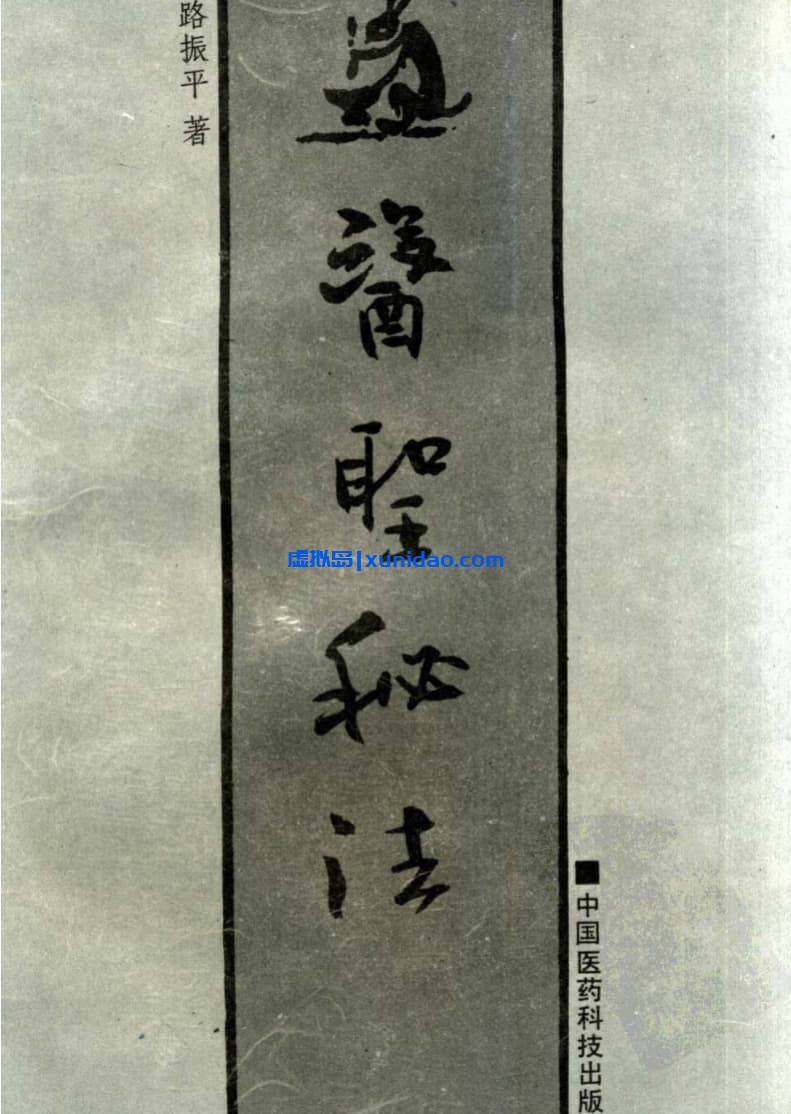 路振平 著
醫聖秘法
虚拟岛|xunidao.com
■中国医药科技出版